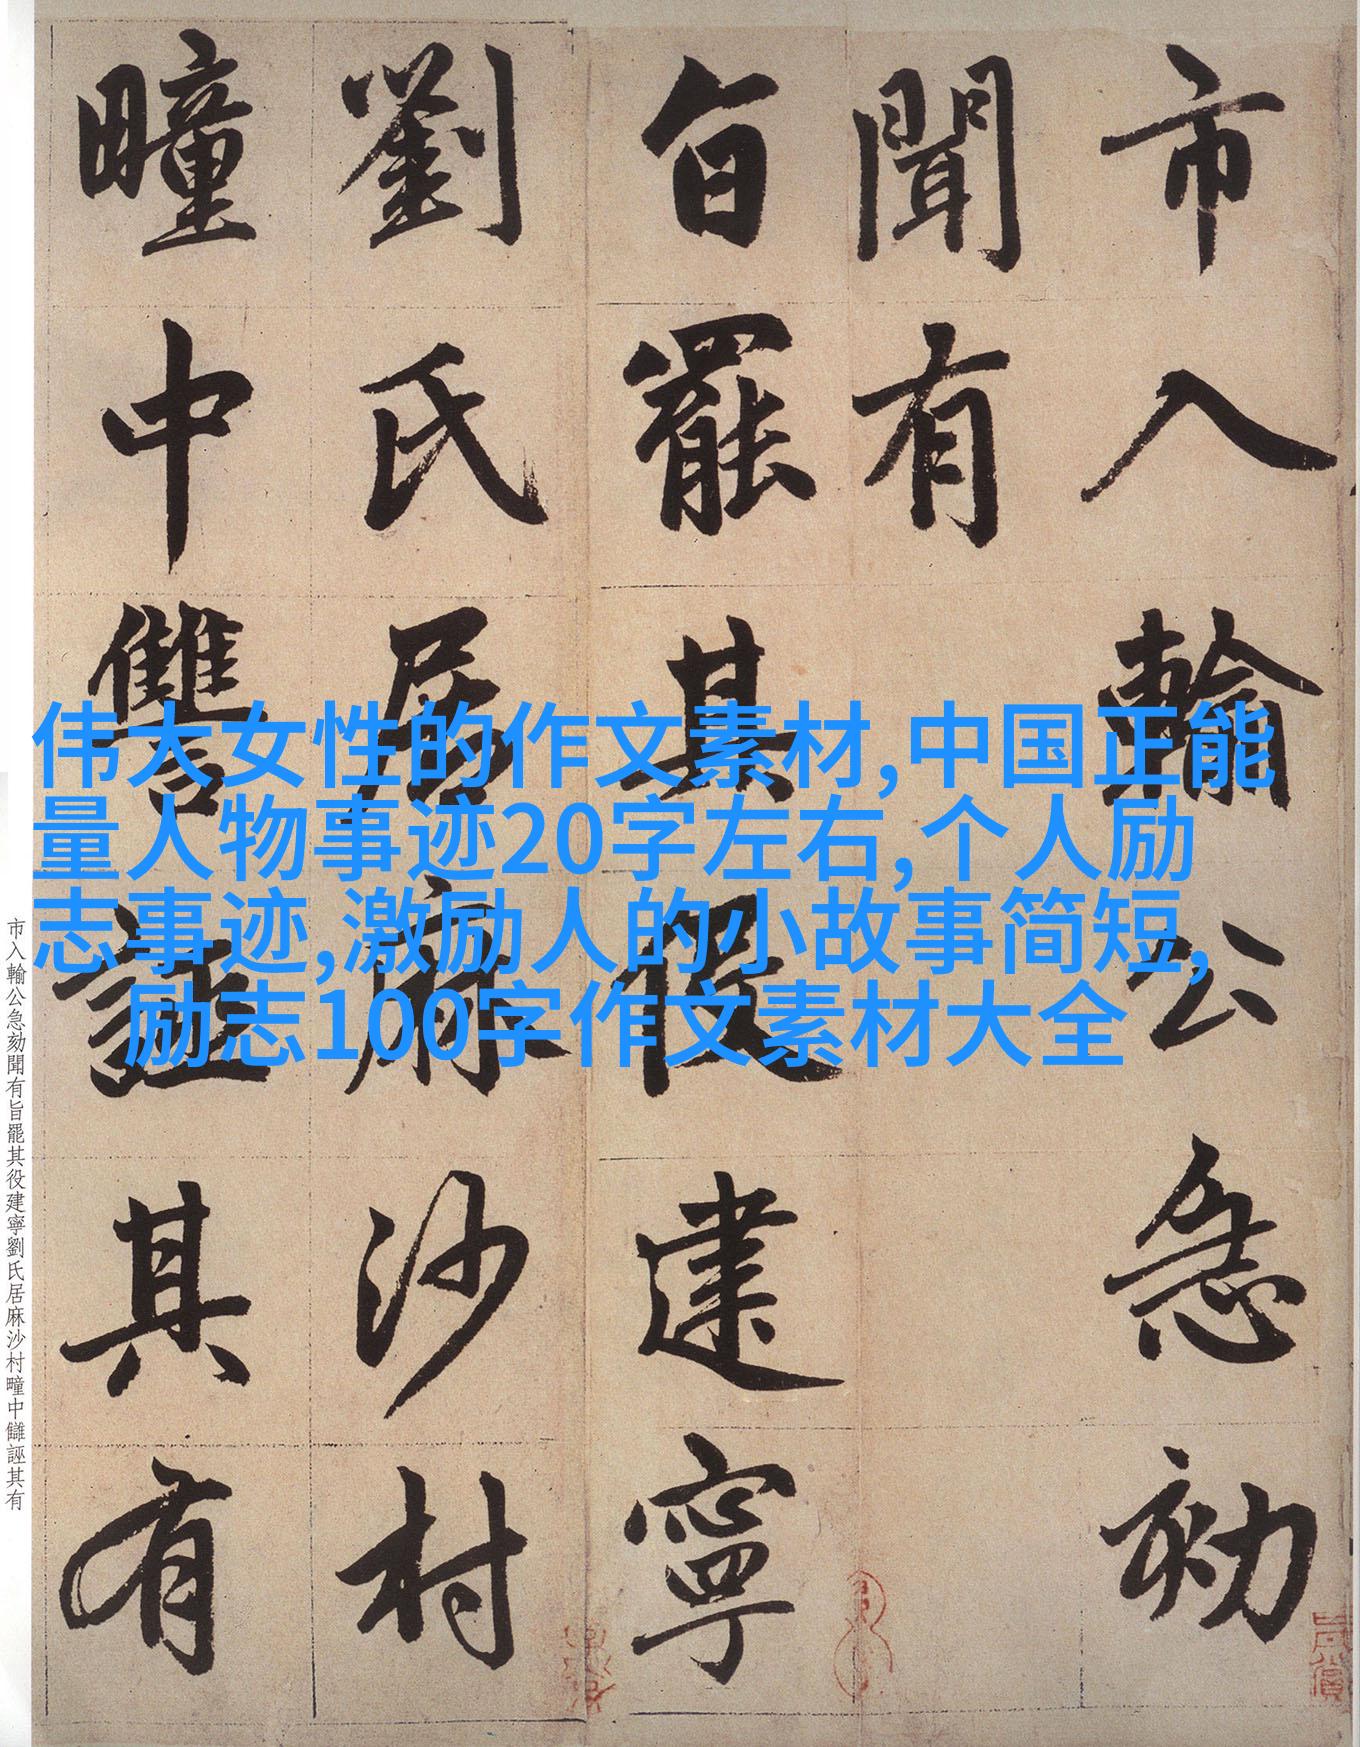 市入輸公急劾
聞有
旨罷其役建寧
劉氏居麻沙村
疃中讎誣其有
伟大女性的作文素材,中国正能
量人物事迹20字左右,个人励
志事迹,激励人的小故事简短,
励志100字作文素材大全
市入輸公急劾聞有旨罷其役建寧劉氏居麻沙村疃中讎誣其有